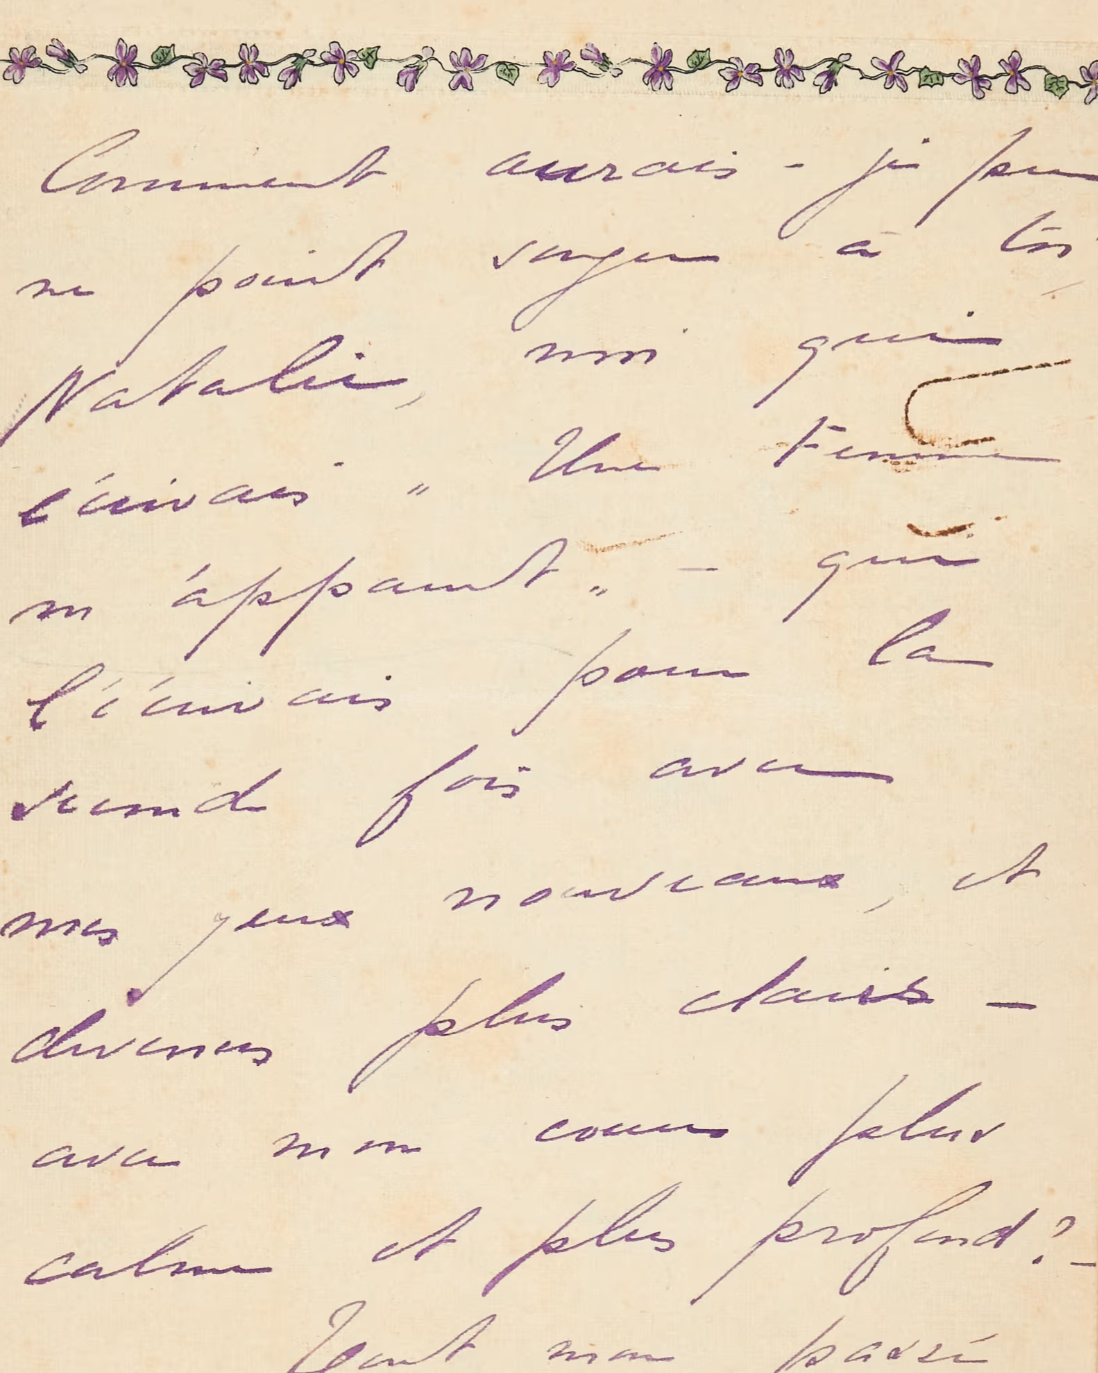 Comment aurais-je pu
ne point songer à toi
Natalie, moi qui
écrivais „ Une Femme
m'apparut „ - qui
l'écrivais pour la
second fois avec
mes yeux nouveaux, et
devenus plus clairs -
avec mon coeur plus
calme et plus profond? -
Tout mon passé